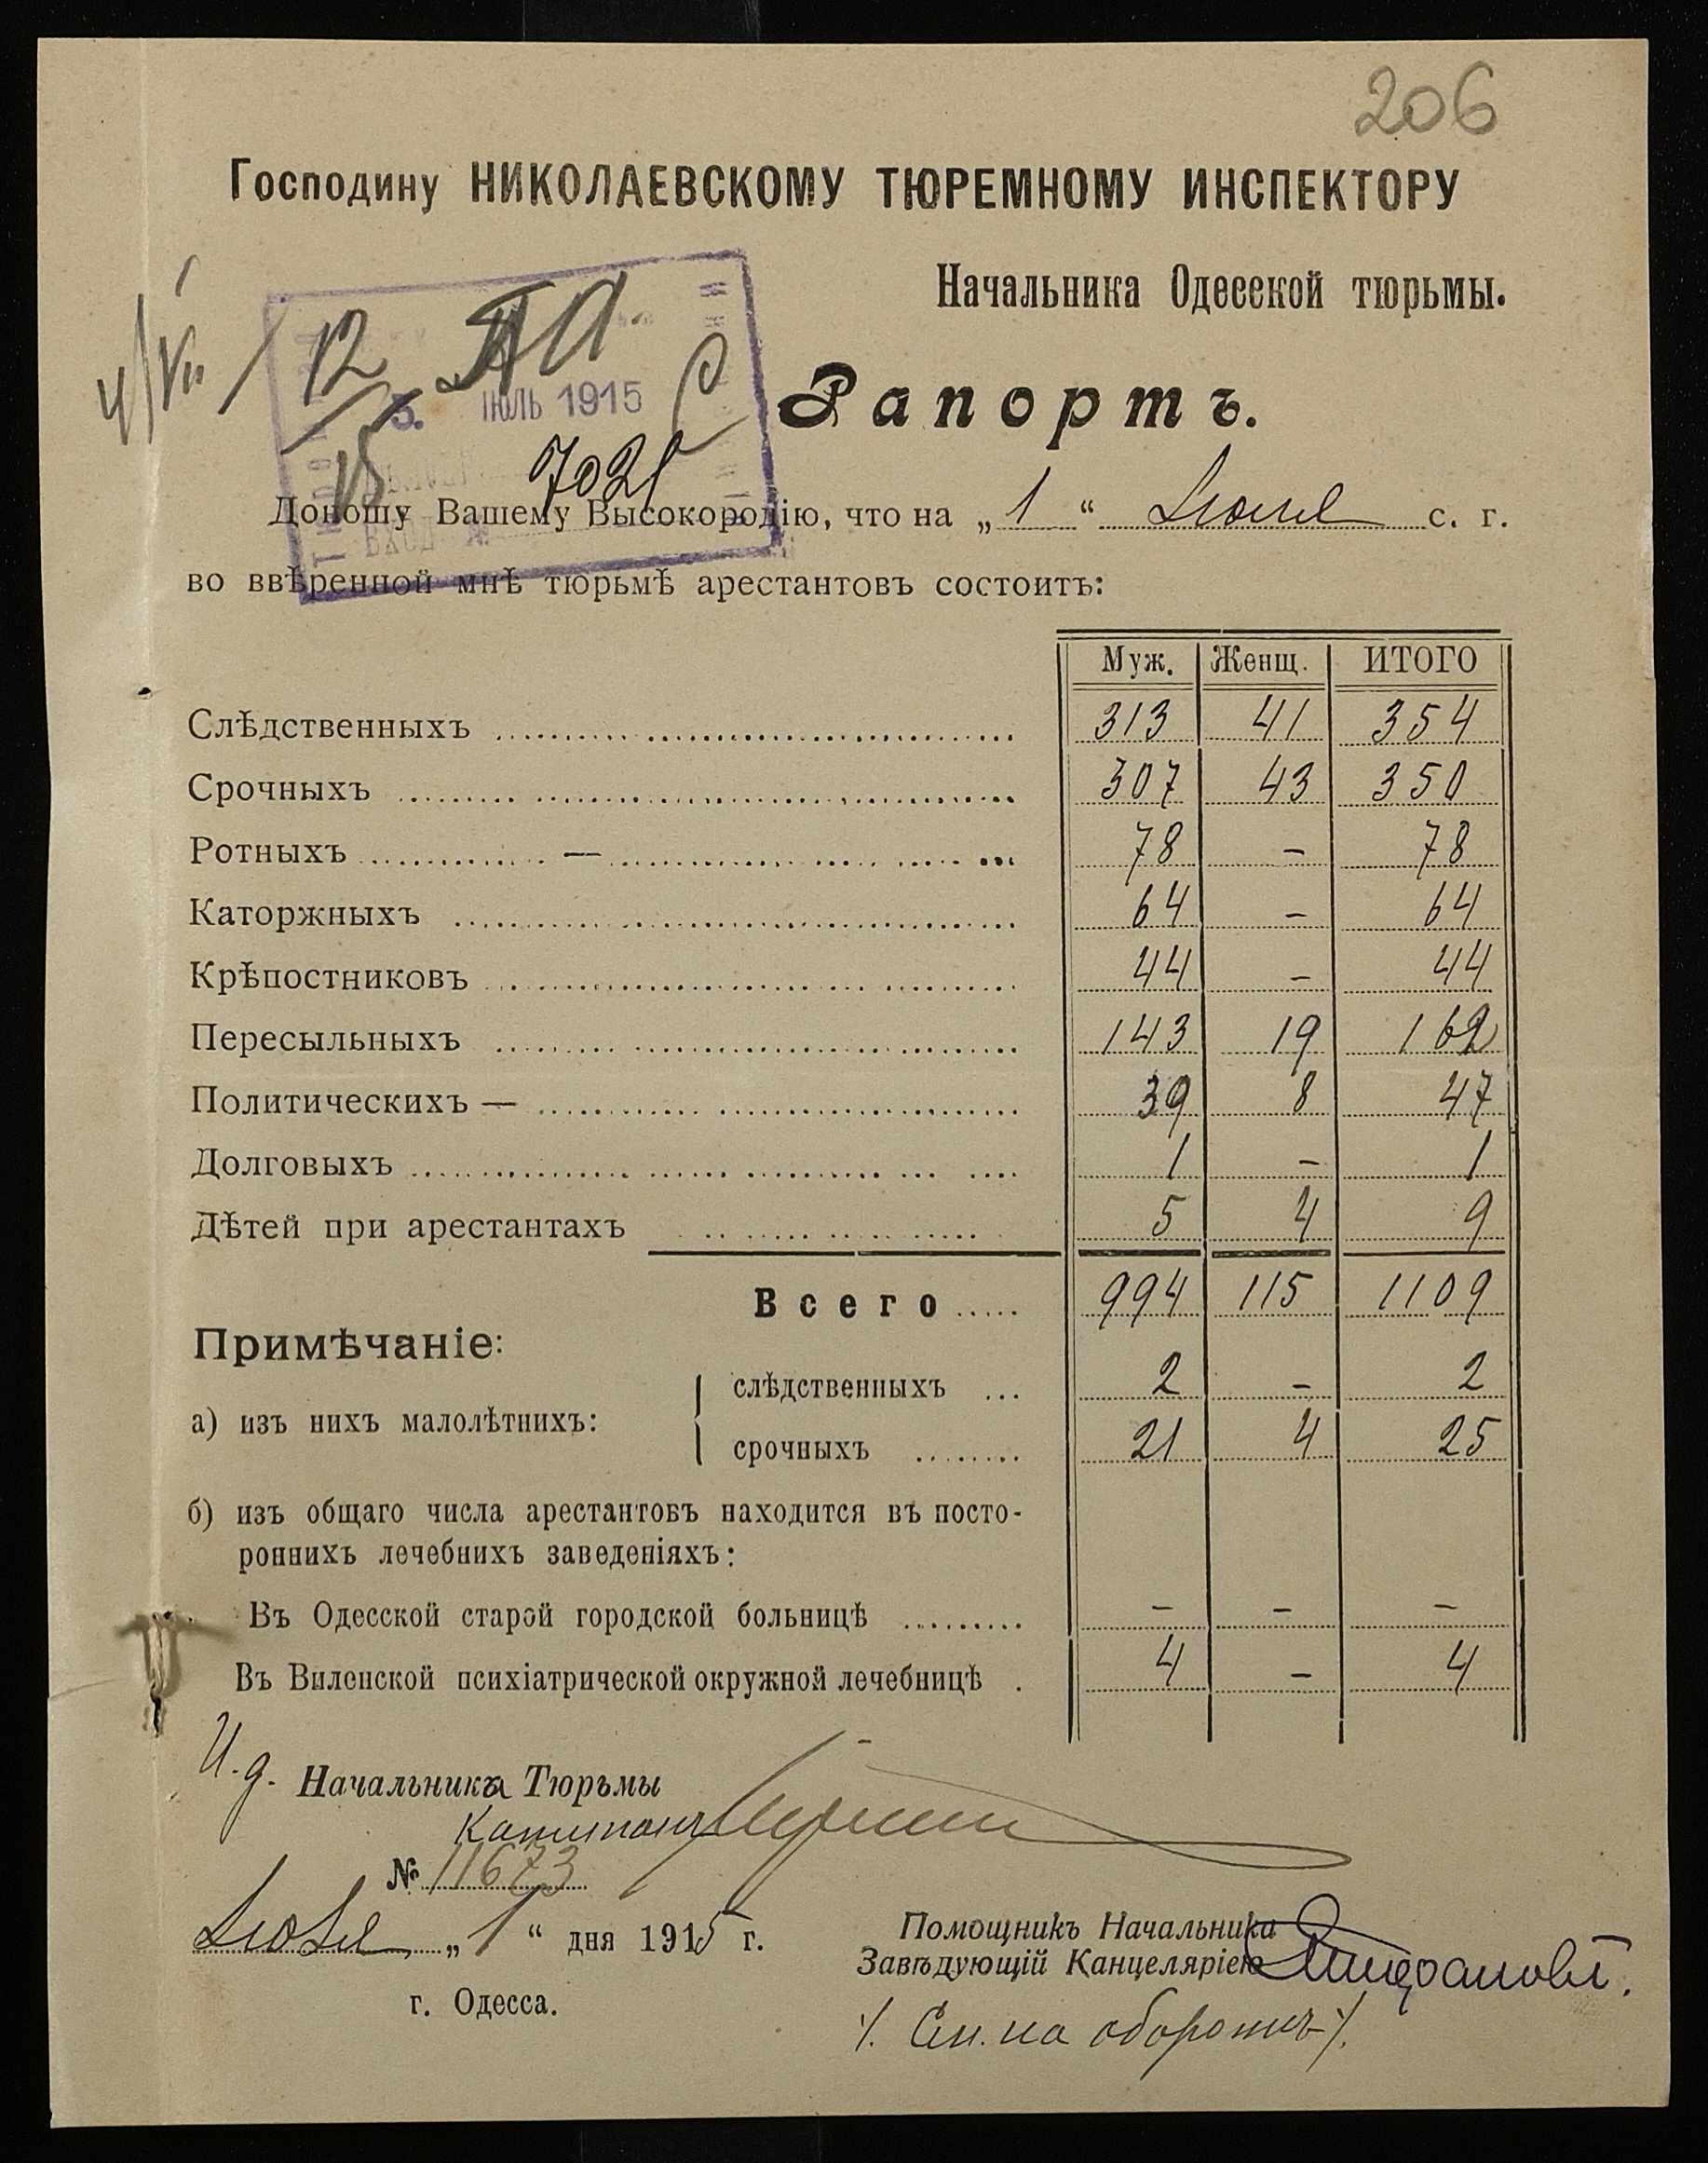 206
Господину НИКОЛАЕВСКОМУ ТЮРЕМНОМУ ИНСПЕКТОРУ
Начальника Одесской тюрьмы.
4/VII
12
15
3. ІЮЛЬ 1915
7021
Рапортъ.
Доношу Вашему Высокородію, что на „1“ Іюля с. г.
во ввѣренной мнѣ тюрьмѣ арестантовъ состоитъ:
Муж. Женщ. ИТОГО
Слѣдственныхъ 313 41 354
Срочныхъ 307 43 350
Ротныхъ — 78 - 78
Каторжныхъ 64 - 64
Крѣпостниковъ 44 - 44
Пересыльныхъ 143 19 162
Политическихъ — 39 8 47
Долговыхъ 1 - 1
Дѣтей при арестантахъ 5 4 9
Всего 994 115 1109
Примѣчаніе:
слѣдственныхъ 2 - 2
а) изъ нихъ малолѣтнихъ:
срочныхъ 21 4 25
б) изъ общаго числа арестантовъ находится въ посто-
роннихъ лечебнихъ заведеніяхъ:
Въ Одесской старой городской больницѣ - - -
Въ Виленской психіатрической окружной лечебницѣ 4 - 4
И. д. Начальника Тюрьмы
Капитанъ
№ 11673
Іюля „1“ дня 1915 г.
Помощникъ Начальника
Завѣдующій Канцеляріею
г. Одесса.
/. См. на оборотѣ /.